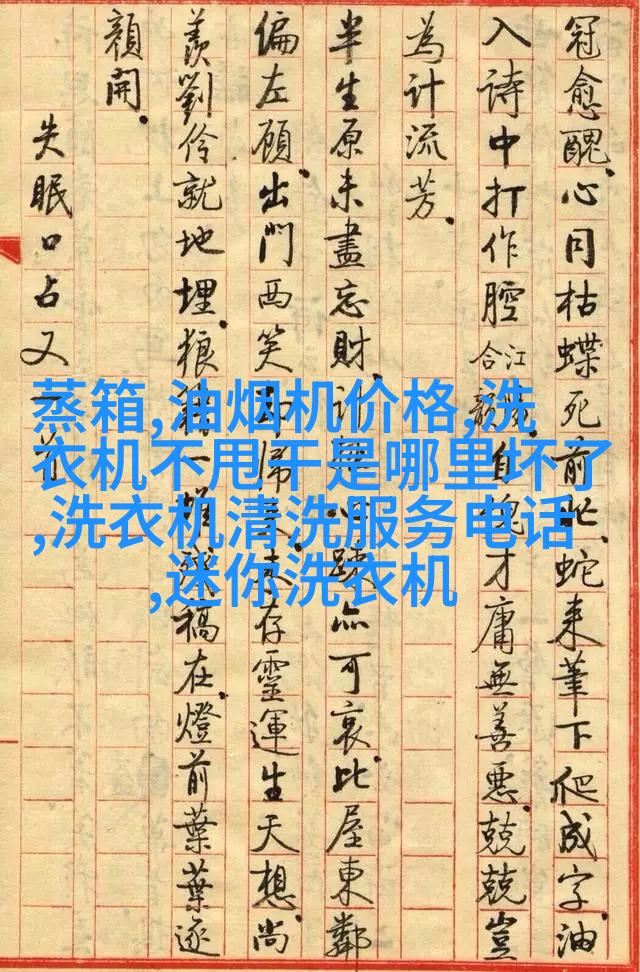 冠愈醜、心同枯蝶死前、蛇来筆下爬成字、油
入詩中打作腔、江合韻自愧才庸無善惡、兢兢豈
為計流芳。
半生原未盡忘財、計心踪亦可哀、比屋東鄰
偏左顧、出門西笑即歸、未存靈運生天想、尚
羨劉伶就地埋、狼藉一堆殘稿在、燈前葉葉逐
顏開。
失眠口占又一首
蒸箱,油烟机价格,洗
衣机不甩干是哪里坏了
,洗衣机清洗服务电话
,迷你洗衣机